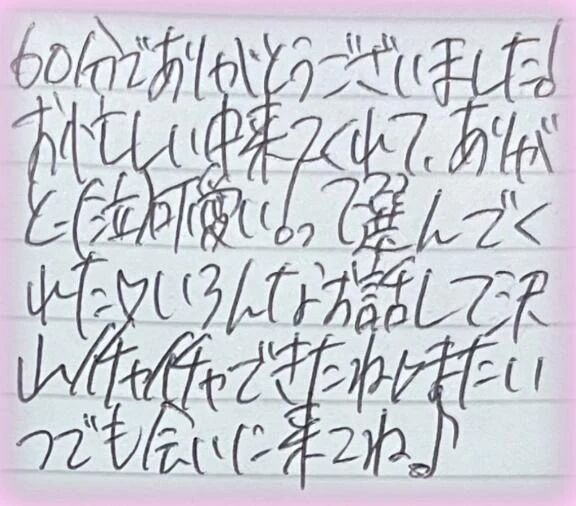 60分でありがとうございました!
お忙しい中来てくれて、ありが
と(泣)可愛い!って選んでく
れた♡いろんなお話して沢
山イチャイチャできたね♪またい
つでも会いに来てね♪